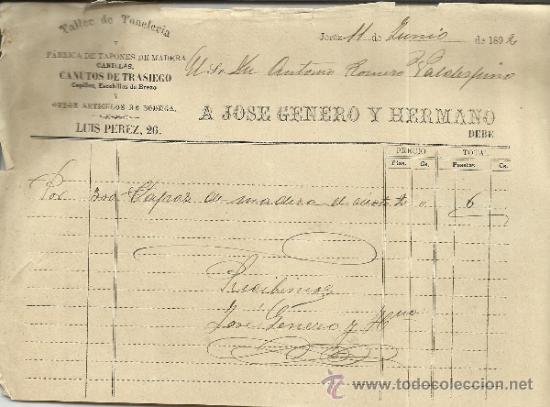 Taller de Toneleria
Y
FÁBRICA DE TAPONES DE MADERA
CANILLAS,
CANUTOS DE TRASIEGO
Cepillos, Escobillas de Brezo
Y
OTROS ARTICULOS DE BODEGA.
LUIS PEREZ, 26.
Jerez 11 de Junio de 1892
Sr Dn Antonio Romero Valdespino
A JOSE GENERO Y HERMANO
DEBE
PRECIO TOTAL
Ptas. Cs. Pesetas Cs.
Por 300 Tapas de madera de 6
Recibimos
José Genero y Hno
www.todocoleccion.net